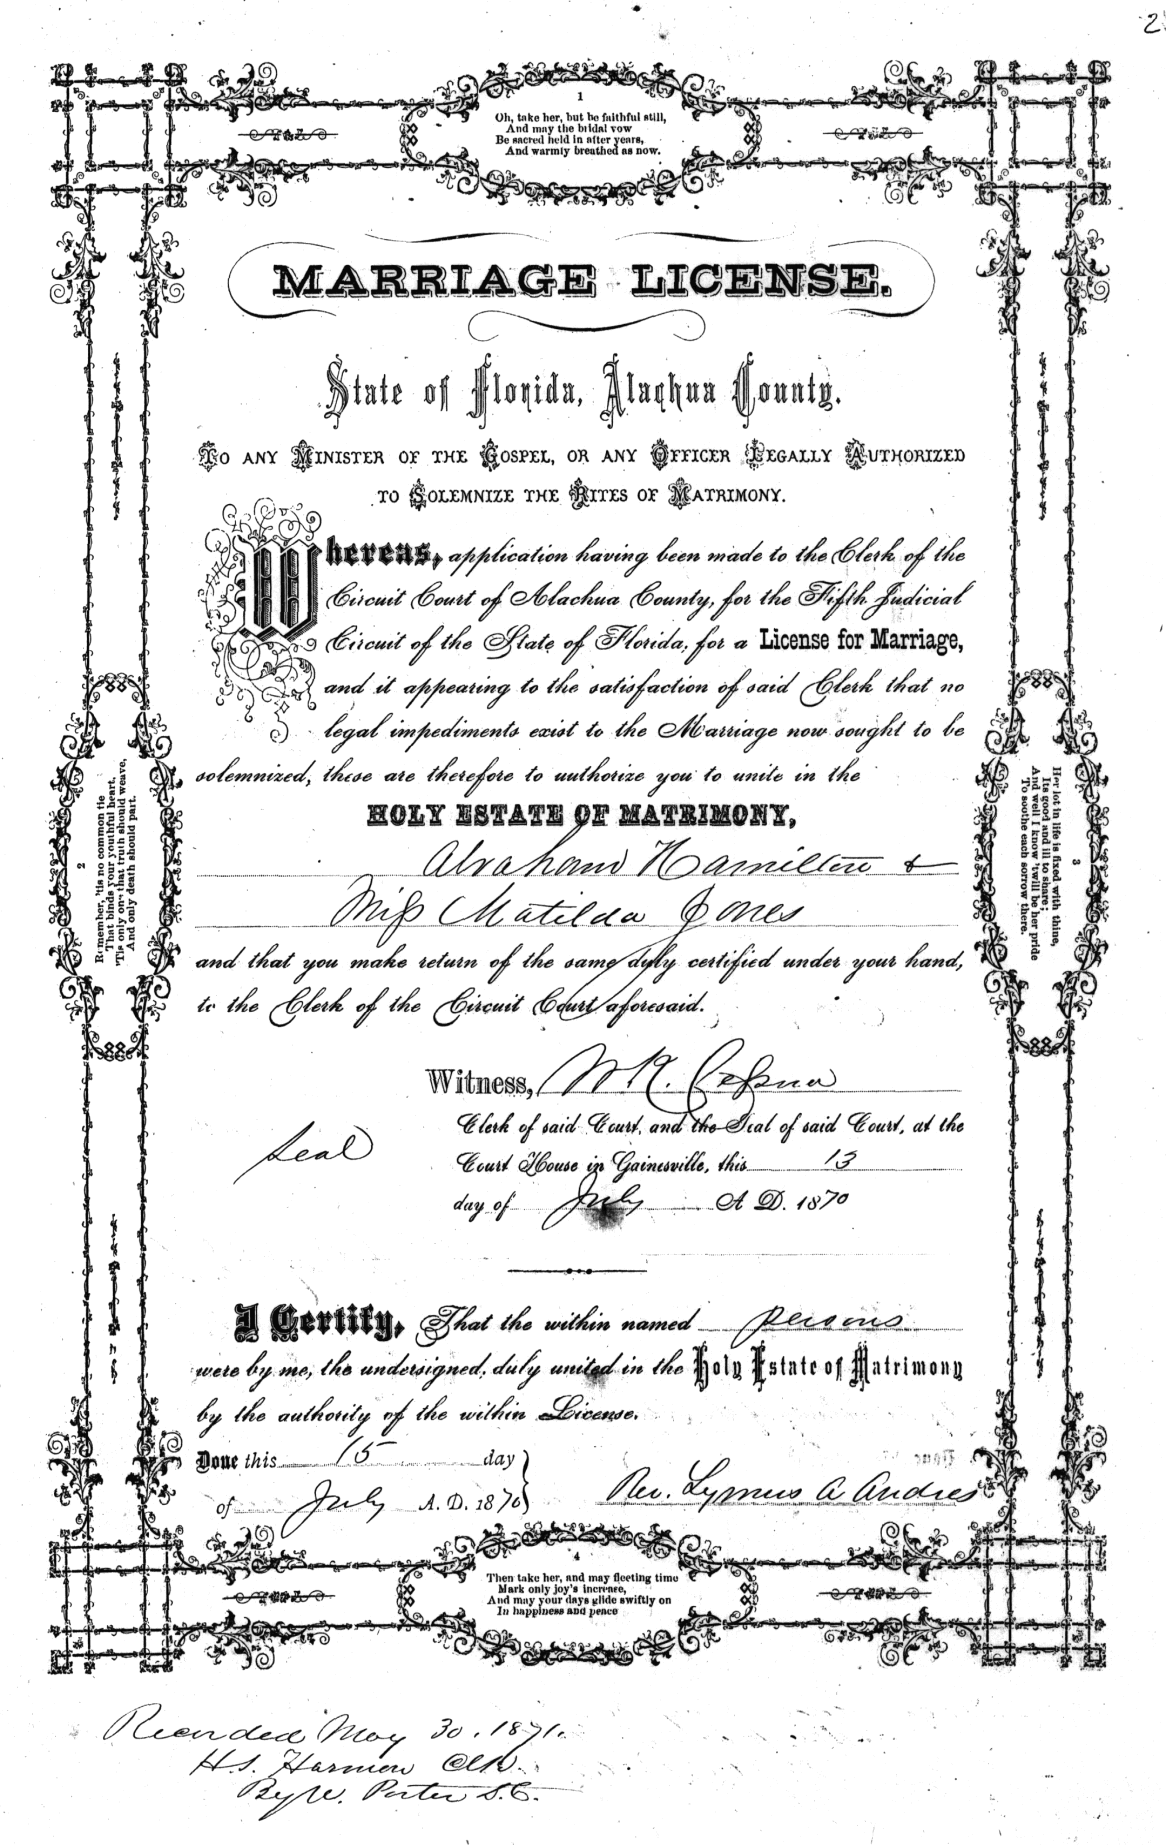 2
1
Oh, take her, but be faithful still,
And may the bridal vow
Be sacred held in after years,
And warmly breathed as now.
MARRIAGE LICENSE.
State of Florida, Alachua County.
TO ANY MINISTER OF THE GOSPEL, OR ANY OFFICER LEGALLY AUTHORIZED
TO SOLEMNIZE THE RITES OF MATRIMONY.
Whereas, application having been made to the Clerk of the
Circuit Court of Alachua County, for the Fifth Judicial
Circuit of the State of Florida, for a License for Marriage,
and it appearing to the satisfaction of said Clerk that no
legal impediments exist to the Marriage now sought to be
solemnized, these are therefore to authorize you to unite in the
HOLY ESTATE OF MATRIMONY,
Abraham Hamilton &
Miss Matilda Jones
and that you make return of the same duly certified under your hand,
to the Clerk of the Circuit Court aforesaid.
2
Remember, 'tis no common tie
That binds your youthful heart,
'Tis only one that truth should weave,
And only death should part.
3
Her lot in life is fixed with thine,
Its good and ill to share;
And well I know 'twill be her pride
To soothe each sorrow there.
Witness, W. K. Cessna
Clerk of said Court, and the Seal of said Court, at the
Seal
Court House in Gainesville, this 13
day of July A D. 1870
I Certify, That the within named persons
were by me, the undersigned, duly united in the Holy Estate of Matrimony
by the authority of the within License.
Done this 15 day
of July A. D. 1870
Rev. Lymus A Andres
4
Then take her, and may fleeting time
Mark only joy's increase,
And may your days glide swiftly on
In happiness and peace
Recorded May 30. 1871.
H.S. Harmon Clk.
By W. Porter D.C.